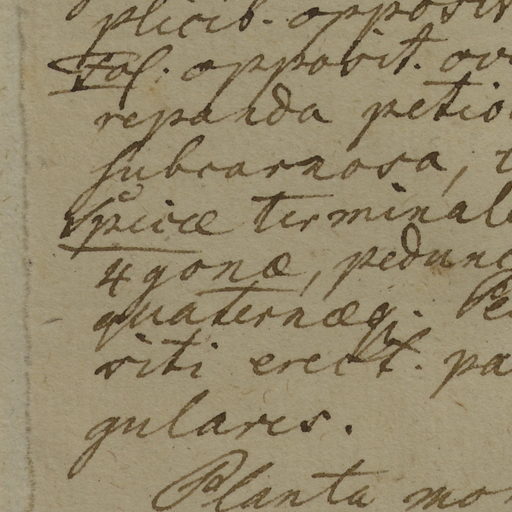 plicib. opposit
Fol. opposit. ov
repanda petio
subcarnosa, t
Spicæ terminal
4gonæ, pedunc
quaternæq. Pe
siti erect. pa
gulares.
Planta mo